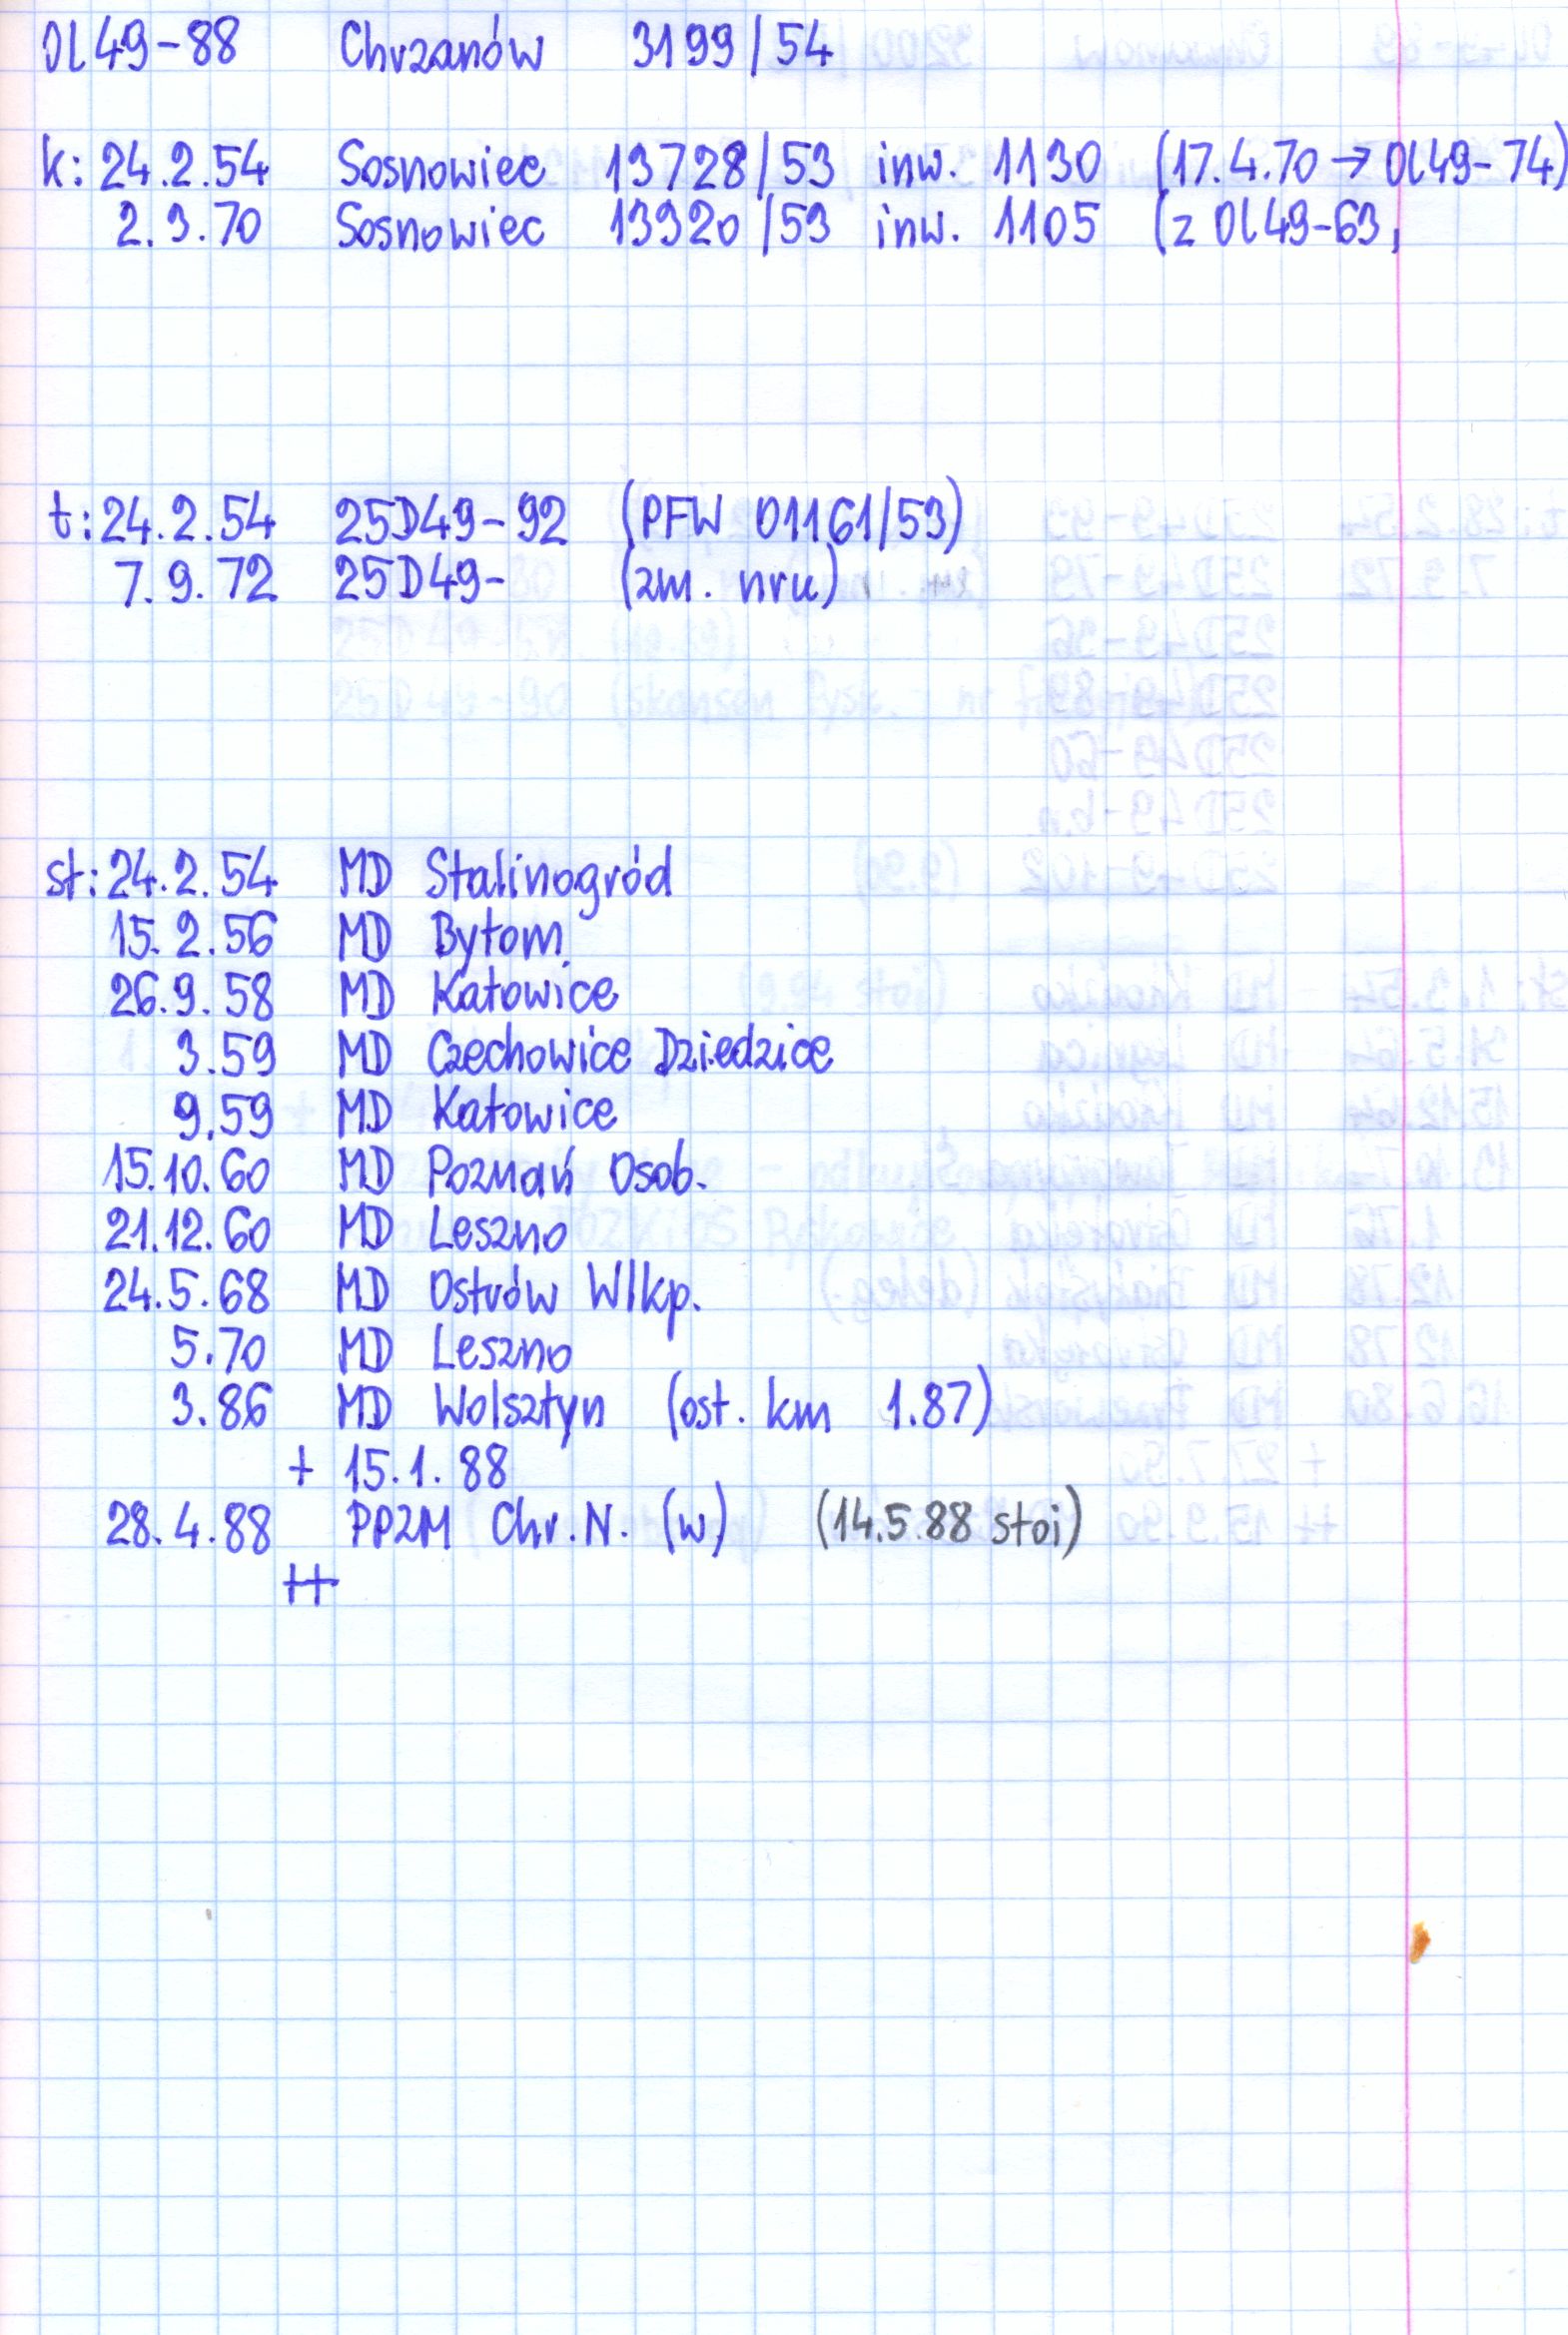 Ol49-88 Chrzanów 3199/54
k: 24.2.54 Sosnowiec 13728/53 inw. 1130 (17.4.70 → Ol49-74)
2.3.70 Sosnowiec 13320/53 inw. 1105 (z Ol49-63,
t: 24.2.54 25D49-92 (PFW 01161/53)
7.9.72 25D49- (zm. nru)
st: 24.2.54 MD Stalinogród
15.2.56 MD Bytom
26.9.58 MD Katowice
3.59 MD Czechowice Dziedzice
9.59 MD Katowice
15.10.60 MD Poznań Osob.
21.12.60 MD Leszno
24.5.68 MD Ostrów Wlkp.
5.70 MD Leszno
3.86 MD Wolsztyn (ost. km 1.87)
+ 15.1.88
28.4.88 PPZM Chr.N. (w) (14.5.88 stoi)
++